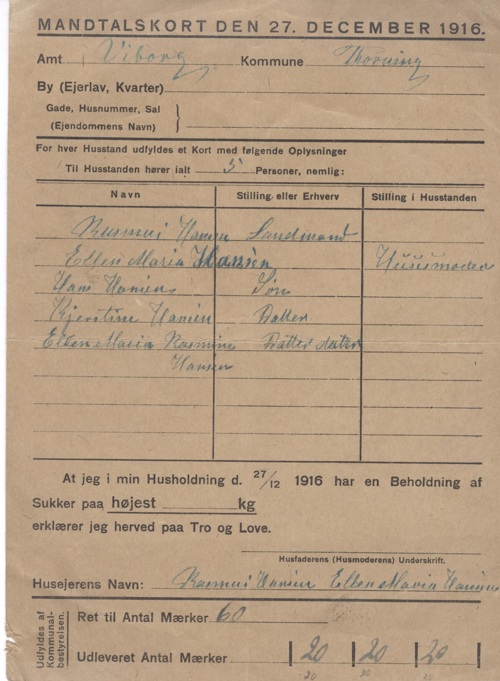 MANDTALSKORT DEN 27. DECEMBER 1916.
Amt Viborg Kommune Thorning
By (Ejerlav, Kvarter)
Gade, Husnummer, Sal
(Ejendommens Navn)
For hver Husstand udfyldes et Kort med følgende Oplysninger
Til Husstanden hører ialt 5 Personer, nemlig:
Navn Stilling eller Erhverv Stilling i Husstanden
Rasmus Hansen Landmand
Ellen Maria Hansen Husmoder
Hans Hansen Søn
Kjerstine Hansen Datter
Ellen Maria Rasmine Datter datter
Hansen
At jeg i min Husholdning d. 27/12 1916 har en Beholdning af
Sukker paa højest kg
erklærer jeg herved paa Tro og Love.
Husfaderens (Husmoderens) Underskrift.
Husejerens Navn: Rasmus Hansen Ellen Maria Hansen
Udfyldes af Kommunal-bestyrelsen.
Ret til Antal Mærker 60
Udleveret Antal Mærker 20 20 20
20 20 20